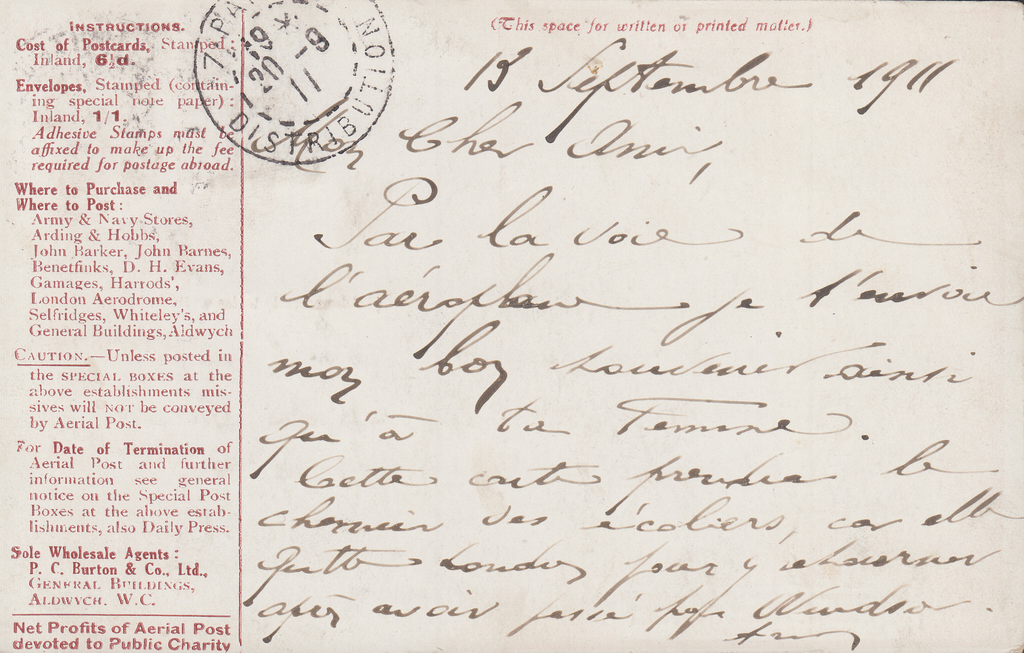 INSTRUCTIONS.
Cost of Postcards, Stamped,
Inland, 6½d.
Envelopes, Stamped (contain-
ing special note paper):
Inland, 1/1.
Adhesive Stamps must be
affixed to make up the fee
required for postage abroad.
Where to Purchase and
Where to Post:
Army & Navy Stores,
Arding & Hobbs,
John Barker, John Barnes,
Benetfinks, D. H. Evans,
Gamages, Harrods',
London Aerodrome,
Selfridges, Whiteley's, and
General Buildings, Aldwych
CAUTION.—Unless posted in
the SPECIAL BOXES at the
above establishments mis-
sives will NOT be conveyed
by Aerial Post.
For Date of Termination of
Aerial Post and further
information see general
notice on the Special Post
Boxes at the above estab-
lishments, also Daily Press.
Sole Wholesale Agents:
P. C. Burton & Co., Ltd.,
GENERAL BUILDINGS,
ALDWYCH, W.C.
Net Profits of Aerial Post
devoted to Public Charity
DISTRIBUTION
(This space for written or printed matter.)
13 Septembre 1911
Mon Cher Ami,
Par la voie de
l'aéroplane je t'envoie
mon bon souvenir ainsi
qu'à ta Femme.
Cette carte prendra le
chemin des écoliers, car elle
quitte Londres pour y retourner
après avoir passé par Windsor.